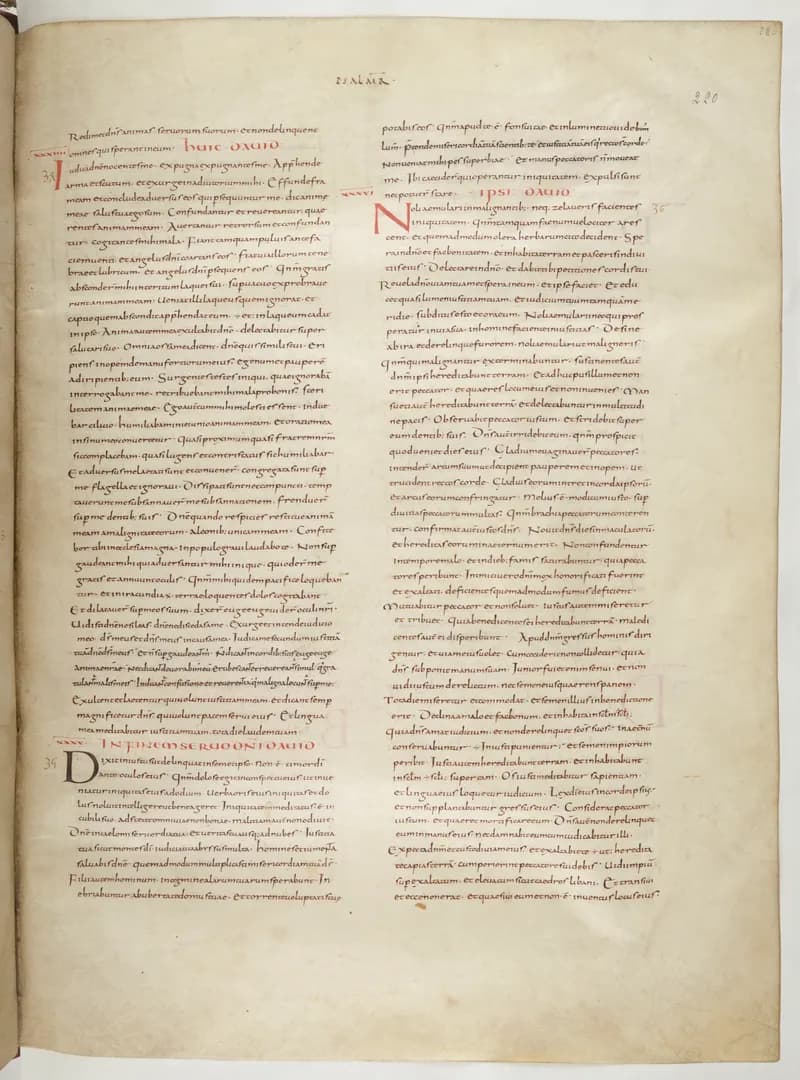 PSALMI DĀD
220
Redimet dn̄s animas seruorum suorum · et non delinquent
omnes qui sperant in eum · HUIC DAUID
XXXIIII
34
Iudica dn̄e nocentes me · expugna expugnantes me · Apprehende
arma et scutum · et exurge in adiutorium mihi · Effunde fra
meam et conclude aduersus eos qui persequuntur me · dic animę
meae salus tua ego sum · Confundantur et reuereantur · quae
rentes animam meam · Auertantur retrorsum et confundan
tur · cogitantes mihi mala · Fiant tamquam puluis ante fa
ciem uenti · et angelus dn̄i coartans eos · Fiat uia illorum tene
brae et lubricum · et angelus dn̄i persequens eos · Qn̄m gratis
absconderunt mihi interitum laquei sui · superuacue exprobrauer
runt animam meam · Ueniat illi laqueus quem ignorat · et
captio quam abscondit apprehendat eum · et in laqueum cadat
in ipso · Anima autem mea exultabit in dn̄o · delectabitur super
salutari suo · Omnia ossa mea dicent · dn̄e quis similis tui · Eri
piens inopem de manu fortiorum eius · egenum et pauperē
a diripientib; eum · Surgentes testes iniqui · quae ignorabā
interrogabant me · retribuebant mihi mala pro bonis · steri
litatem animae meae · Ego autem cum mihi molesti essent · indue
bar cilicio · humiliabam in ieiunio animam meam · et oratio mea
in sinu meo conuertetur · Quasi proximum quasi fratrem nr̄m
sic complacebam · quasi lugens et contristatus sic humiliabar ·
Et aduersum me laetati sunt et conuenerunt · congregata sunt sup
me flagella et ignoraui · Dissipati sunt nec compuncti · temp
tauerunt me subsannauerunt me subsannatione · frenduer̄
sup me dentib; suis · Dn̄e quando respicies restitue animā
meam a malignitate eorum · a leonib; unicam meam · Confite
bor tibi in ecclesia magna · in populo graui laudabo te · Non sup
gaudeant mihi qui aduersantur mihi inique · qui oderunt me
gratis et annuunt oculis · Qn̄m mihi quidem pacifice loqueban
tur · et in iracundia terrae loquentes dolos cogitabant
Et dilatauer̄ sup me os suum · dixer̄ euge euge uider̄ oculi nr̄i ·
Uidisti dn̄e ne sileas · dn̄e ne discedas a me · Exurge et intende iudicio
meo · ds̄ meus et dn̄s meus in causam meā · Iudica me secundum iustitiā
tuā dn̄e ds̄ meus · et n̄ supgaudeant m̄ · N̄ dicant in cordib; suis euge euge
animae nr̄ae · nec dicant deuorabim̄ eū · Erubescant et reuereantur simul · q̄ gra
tulant̄ malis meis · Induant̄ confusione et reuerentia q̄ maligna locuti st̄ sup me ·
Exultent et laetentur qui uolunt iustitiam meam · et dicant semp
magnificetur dn̄s · qui uolunt pacem serui eius · Et lingua
mea meditabitur iustitiam tuam · tota die laudem tuam ·
XXXV · IN FINEM SERUO DN̄I DAUID
35
Dixit iniustus ut delinquat in semetipso · non ē timor dī
ante oculos eius · Qn̄m dolose egit in conspectu eius · ut inue
niatur iniquitas eius ad odium · Uerba oris eius iniquitas et do
lus noluit intellegere ut bene ageret · Iniquitatem meditatus ē in
cubili suo · adstetit omni uiae non bonae · malitiam autem non odiuit ·
Dn̄e in caelo misericordia tua · et ueritas tua usq; ad nubes · Iustitia
tua sicut montes dī · iudicia tua abyssus multa · Homines et iumenta
saluabis dn̄e · quemadmodum multiplicasti misericordiam tuā ds̄ ·
Filii autem hominum · in tegmine alarum tuarum sperabunt · In
ebriabuntur ab ubertate domus tuae · Et torrente uoluptatis tuę
potabis eos · Qn̄m apud te ē · fons uitae · et in lumine tuo uidebim̄
lum̄ · p̄tende misericordiā tuā scientib; te · et iustitiā tuā his q̄ recto st̄ corde ·
Non ueniat mihi pes superbiae · Et manus peccatoris n̄ moueat
me · Ibi ceciderunt qui operantur iniquitatem · expulsi sunt
nec potuer̄ stare · IPSI DAUID
XXXVI
36
Noli aemulari in malignantib; · neq; zelaueris facientes
iniquitatem · Qn̄m tamquam faenum uelociter ares
cent · et quemadmodum olera herbarum cito decident · Spe
ra in dn̄o et fac bonitatem · et inhabita terram et pasceris in diui
tiis eius · Delectare in dn̄o · et dabit tibi petitiones cordis tui ·
Reuela dn̄o uiam tuam et spera in eum · et ipse faciet · Et edu
cet quasi lumen iustitiam tuam · et iudicium tuum tamquam me
ridie · subditus esto dn̄o et ora eum · Noli aemulari in eo qui pros
peratur in uia sua · in homine faciente iniustitias · Desine
ab ira et derelinque furorem · noli aemulari ut maligneris ·
Qn̄m qui malignantur exterminabuntur · sustinentes autē
dn̄m ipsi hereditabunt terram · Et adhuc pusillum et non
erit peccator · et quaeres locum eius et non inuenies · Man
sueti autē hereditabunt terrā · et delectabuntur in multitudi
ne pacis · Obseruabit peccator iustum · et stridebit super
eum dentib; suis · Dn̄s autē irridebit eum · qn̄m prospicit
quod ueniet dies eius · Gladium euaginauer̄ peccatores ·
intender̄ arcum suum ut decipiant pauperem et inopem · ut
trucident rectos corde · Gladius eorum intret in corda ipsorū ·
et arcus eorum confringatur · Melius ē modicum iusto · sup
diuitias peccatorum multas · Qn̄m brachia peccatorum conteren
tur · confirmat autē iustos dn̄s · Nouit dn̄s dies inmaculatorū ·
et hereditas eorum in aeternum erit · Non confundentur
in tempore malo · et in dieb; famis saturabuntur · quia pecca
tores peribunt · Inimici uero dn̄i mox honorificati fuerint
et exaltati · deficientes quemadmodum fumus deficient ·
Mutuabitur peccator et non soluet · iustus autem miseretur
et tribuet · Quia benedicentes ei hereditabunt terrā · maledi
centes autē ei disperibunt · Apud dn̄m gressus hominis diri
gentur · et uiam eius uolet · Cum ceciderit non collidetur · quia
dn̄s subponit manum suam · Iunior fui etenim senui · et non
uidi iustum derelictum · nec semen eius quaerens panem ·
Tota die miseretur et commodat · et semen illius in benedictione
erit · Declina a malo et fac bonum · et inhabita in sc̄lm sc̄li ·
Quia dn̄s amat iudicium · et non derelinquet sc̄os suos · in aetnū
conseruabuntur · Iniusti punientur · et semen impiorum
peribit · Iusti autem hereditabunt terrā · et inhabitabunt
in sc̄lm sc̄li · super eam · Os iusti meditabitur sapientiam ·
et lingua eius loquetur iudicium · Lex dī eius in corde ipsius ·
et non supplantabuntur gressus eius · Considerat peccator
iustum · et quaerit mortificare eum · Dn̄s autē non derelinquet
eum in manus eius · nec damnabit eum cum iudicabitur illi ·
Expecta dn̄m et custodi uiam eius · et exaltabit te ut heredita
te capias terrā · cum perierint peccatores uidebis · Uidi impiū
supexaltatum · et eleuatum sicut cedros libani · Et transiui
et ecce non erat · et quaesiui eum et non ē · inuentus locus eius ·